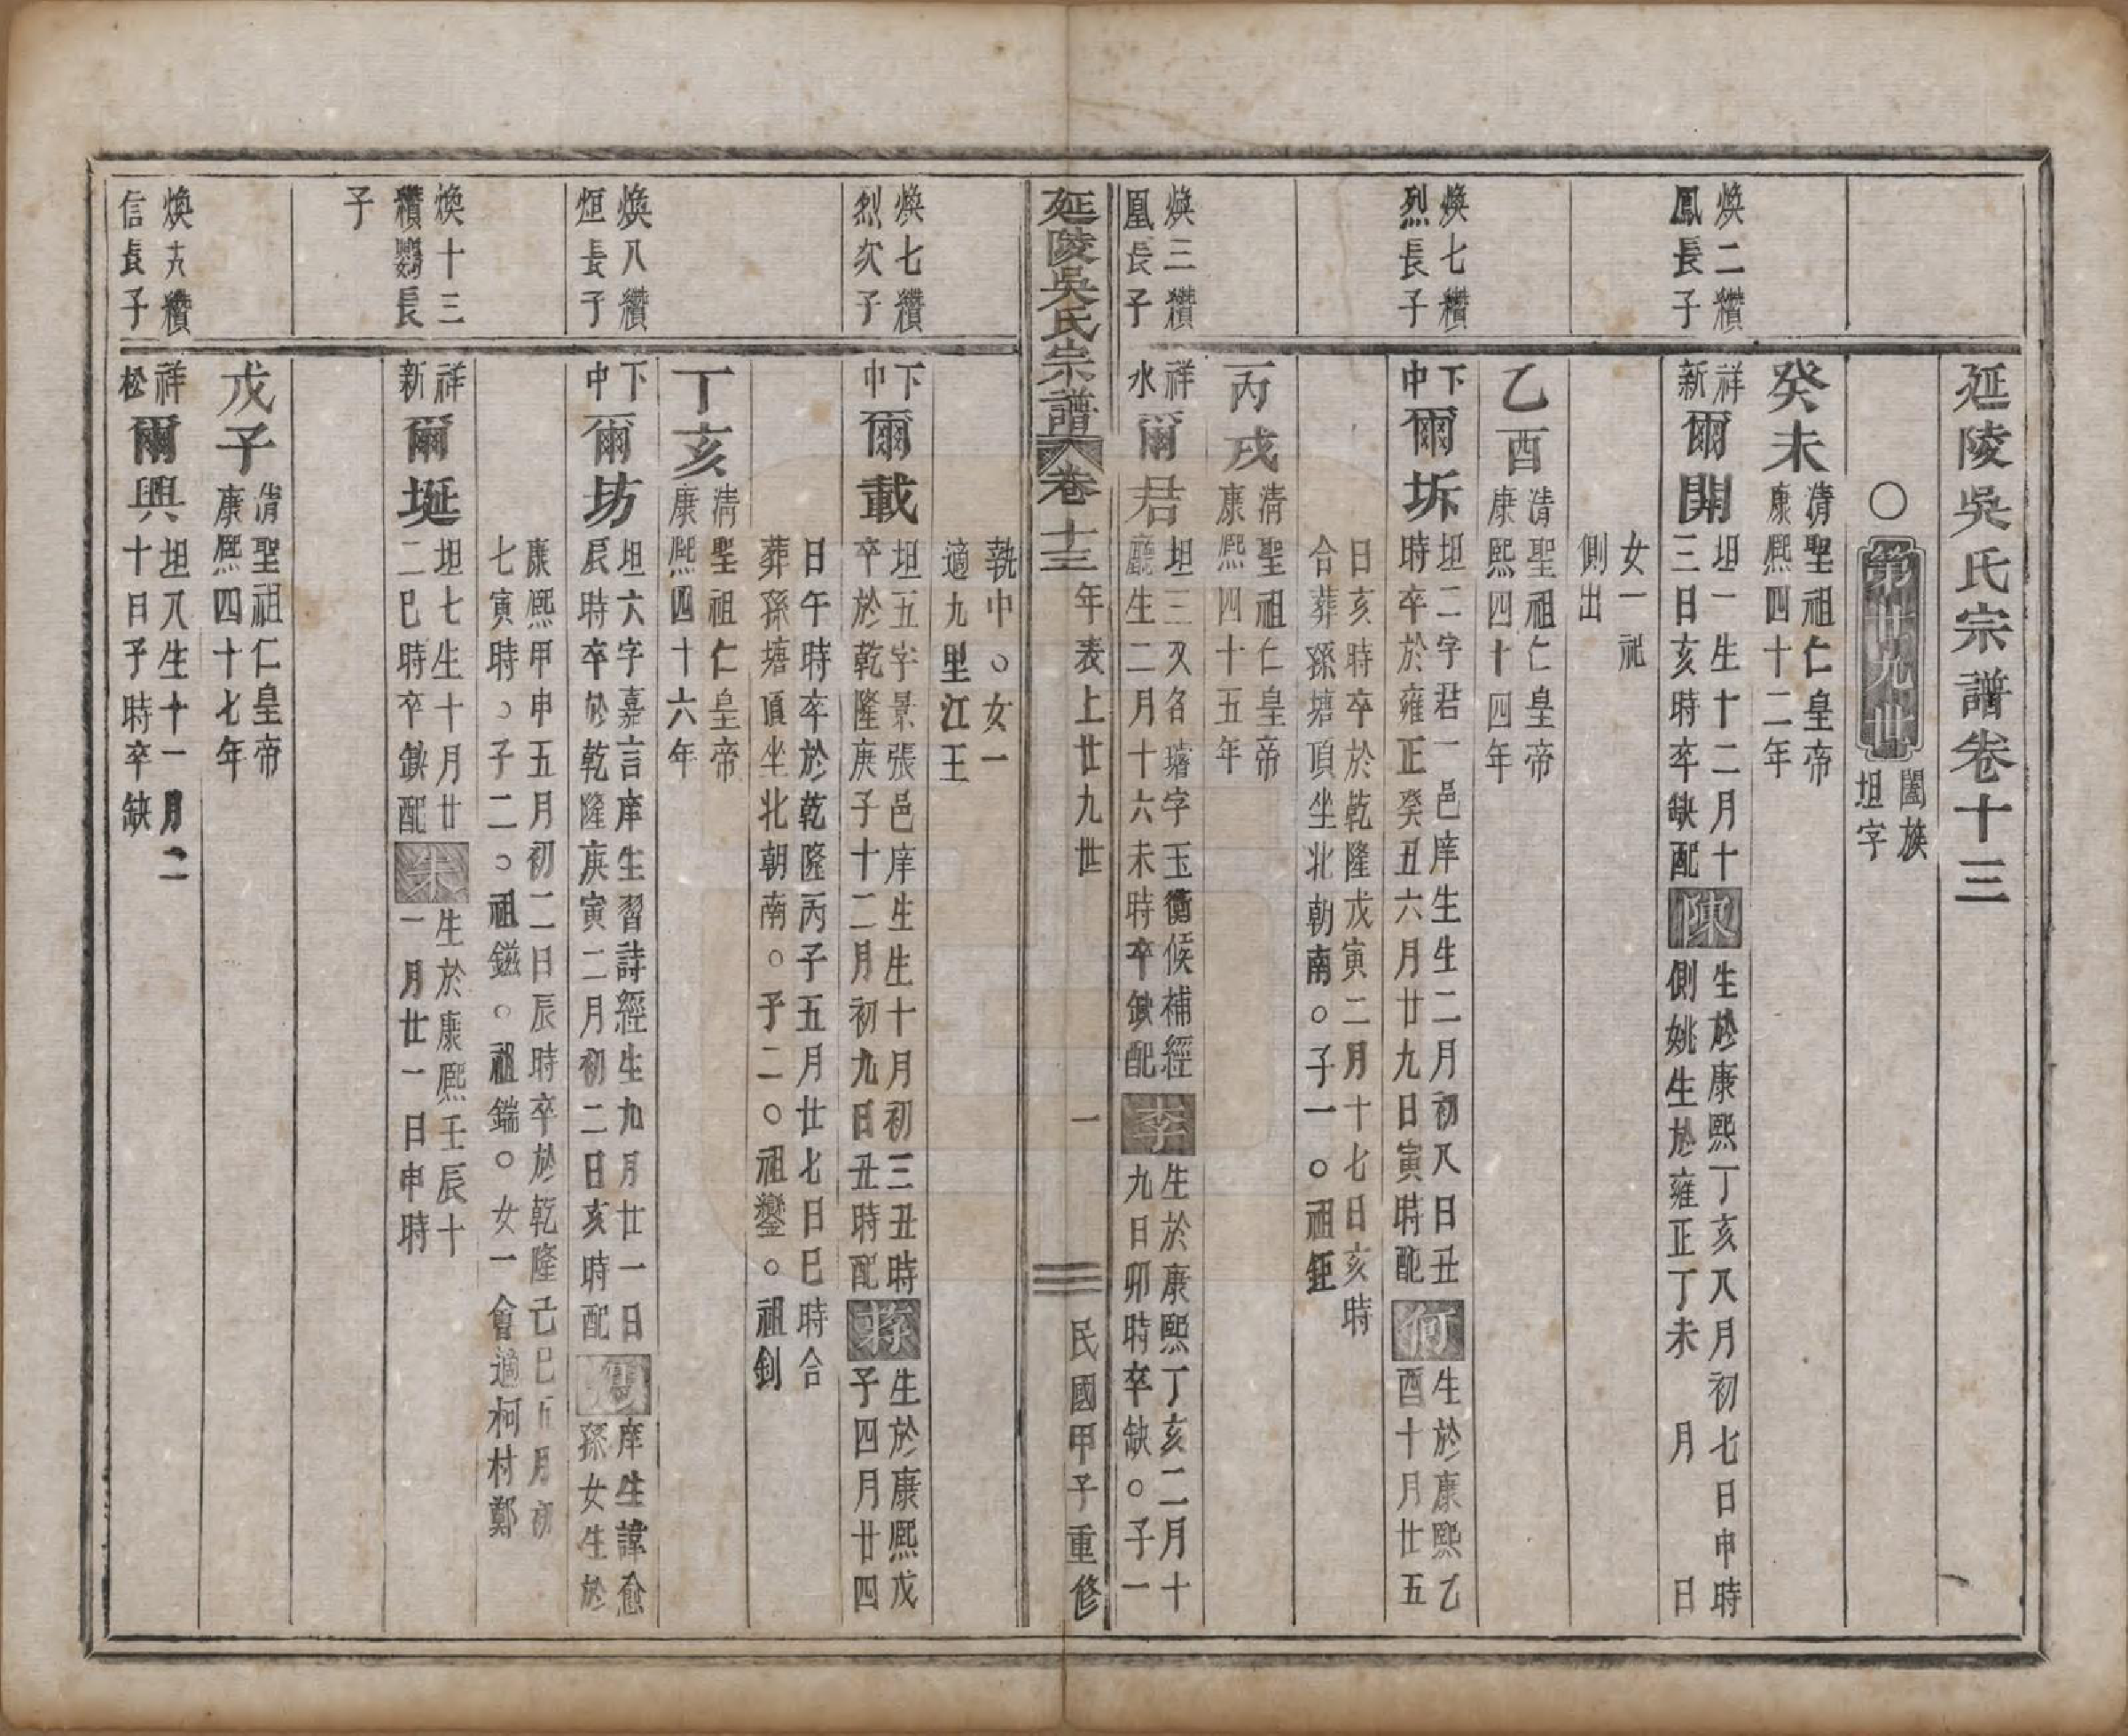 延陵吳氏宗譜卷十三
○第廿九世 闔族坦字
癸未 清聖祖仁皇帝康熙四十二年
煥二纘鳳長子
祥新 爾開 坦一生十二月十三日亥時卒缺配陳生於康熙丁亥又月初七日申時側姚生於雍正丁未 月 日
女一祂側出
乙酉 清聖祖仁皇帝康熙四十四年
煥七纘烈長子
下中 爾坼 坦二字君一邑庠生生二月初八日丑時卒於雍正癸丑六月廿九日寅時配何生於康熙乙酉十月廿五
日亥時卒於乾隆戊寅二月十七日亥時合葬孫塘頂坐北朝南○子一○祖鉅
丙戌 清聖祖仁皇帝康熙四十五年
煥三纘凰長子
祥水 爾君 坦三又名璿字玉衡候補經廳生二月十六未時卒缺配李生於康熙丁亥二月十九日卯時卒缺○子一
延陵吳氏宗譜 卷十三 年表上廿九世 一 民國甲子重修
執中○女一適九里江王
煥七纘烈次子
下中 爾載 坦五字景張邑庠生生十月初三丑時卒於乾隆庚子十二月初九日丑時配蔣生於康熙戊子四月廿四
日午時卒於乾隆丙子五月廿七日巳時合葬孫塘頂坐北朝南○子二○祖鑾○祖釗
丁亥 清聖祖仁皇帝康熙四十六年
煥八纘烜長子
下中 爾坊 坦六字嘉言庠生習詩經生九月廿一日辰時卒於乾隆庚寅二月初二日亥時配庠生諱愈孫女生於
康熙甲申五月初二日辰時卒於乾隆己巳五月初七寅時○子二○祖鎡○祖鍴○女一會適柯村鄭
煥十三纘鸚長子
祥新 爾埏 坦七生十月廿二巳時卒缺配朱生於康熙壬辰十一月廿一日申時
戊子 清聖祖仁皇帝康熙四十七年
煥九纘信長子
祥松 爾興 坦八生十一月二十日子時卒缺